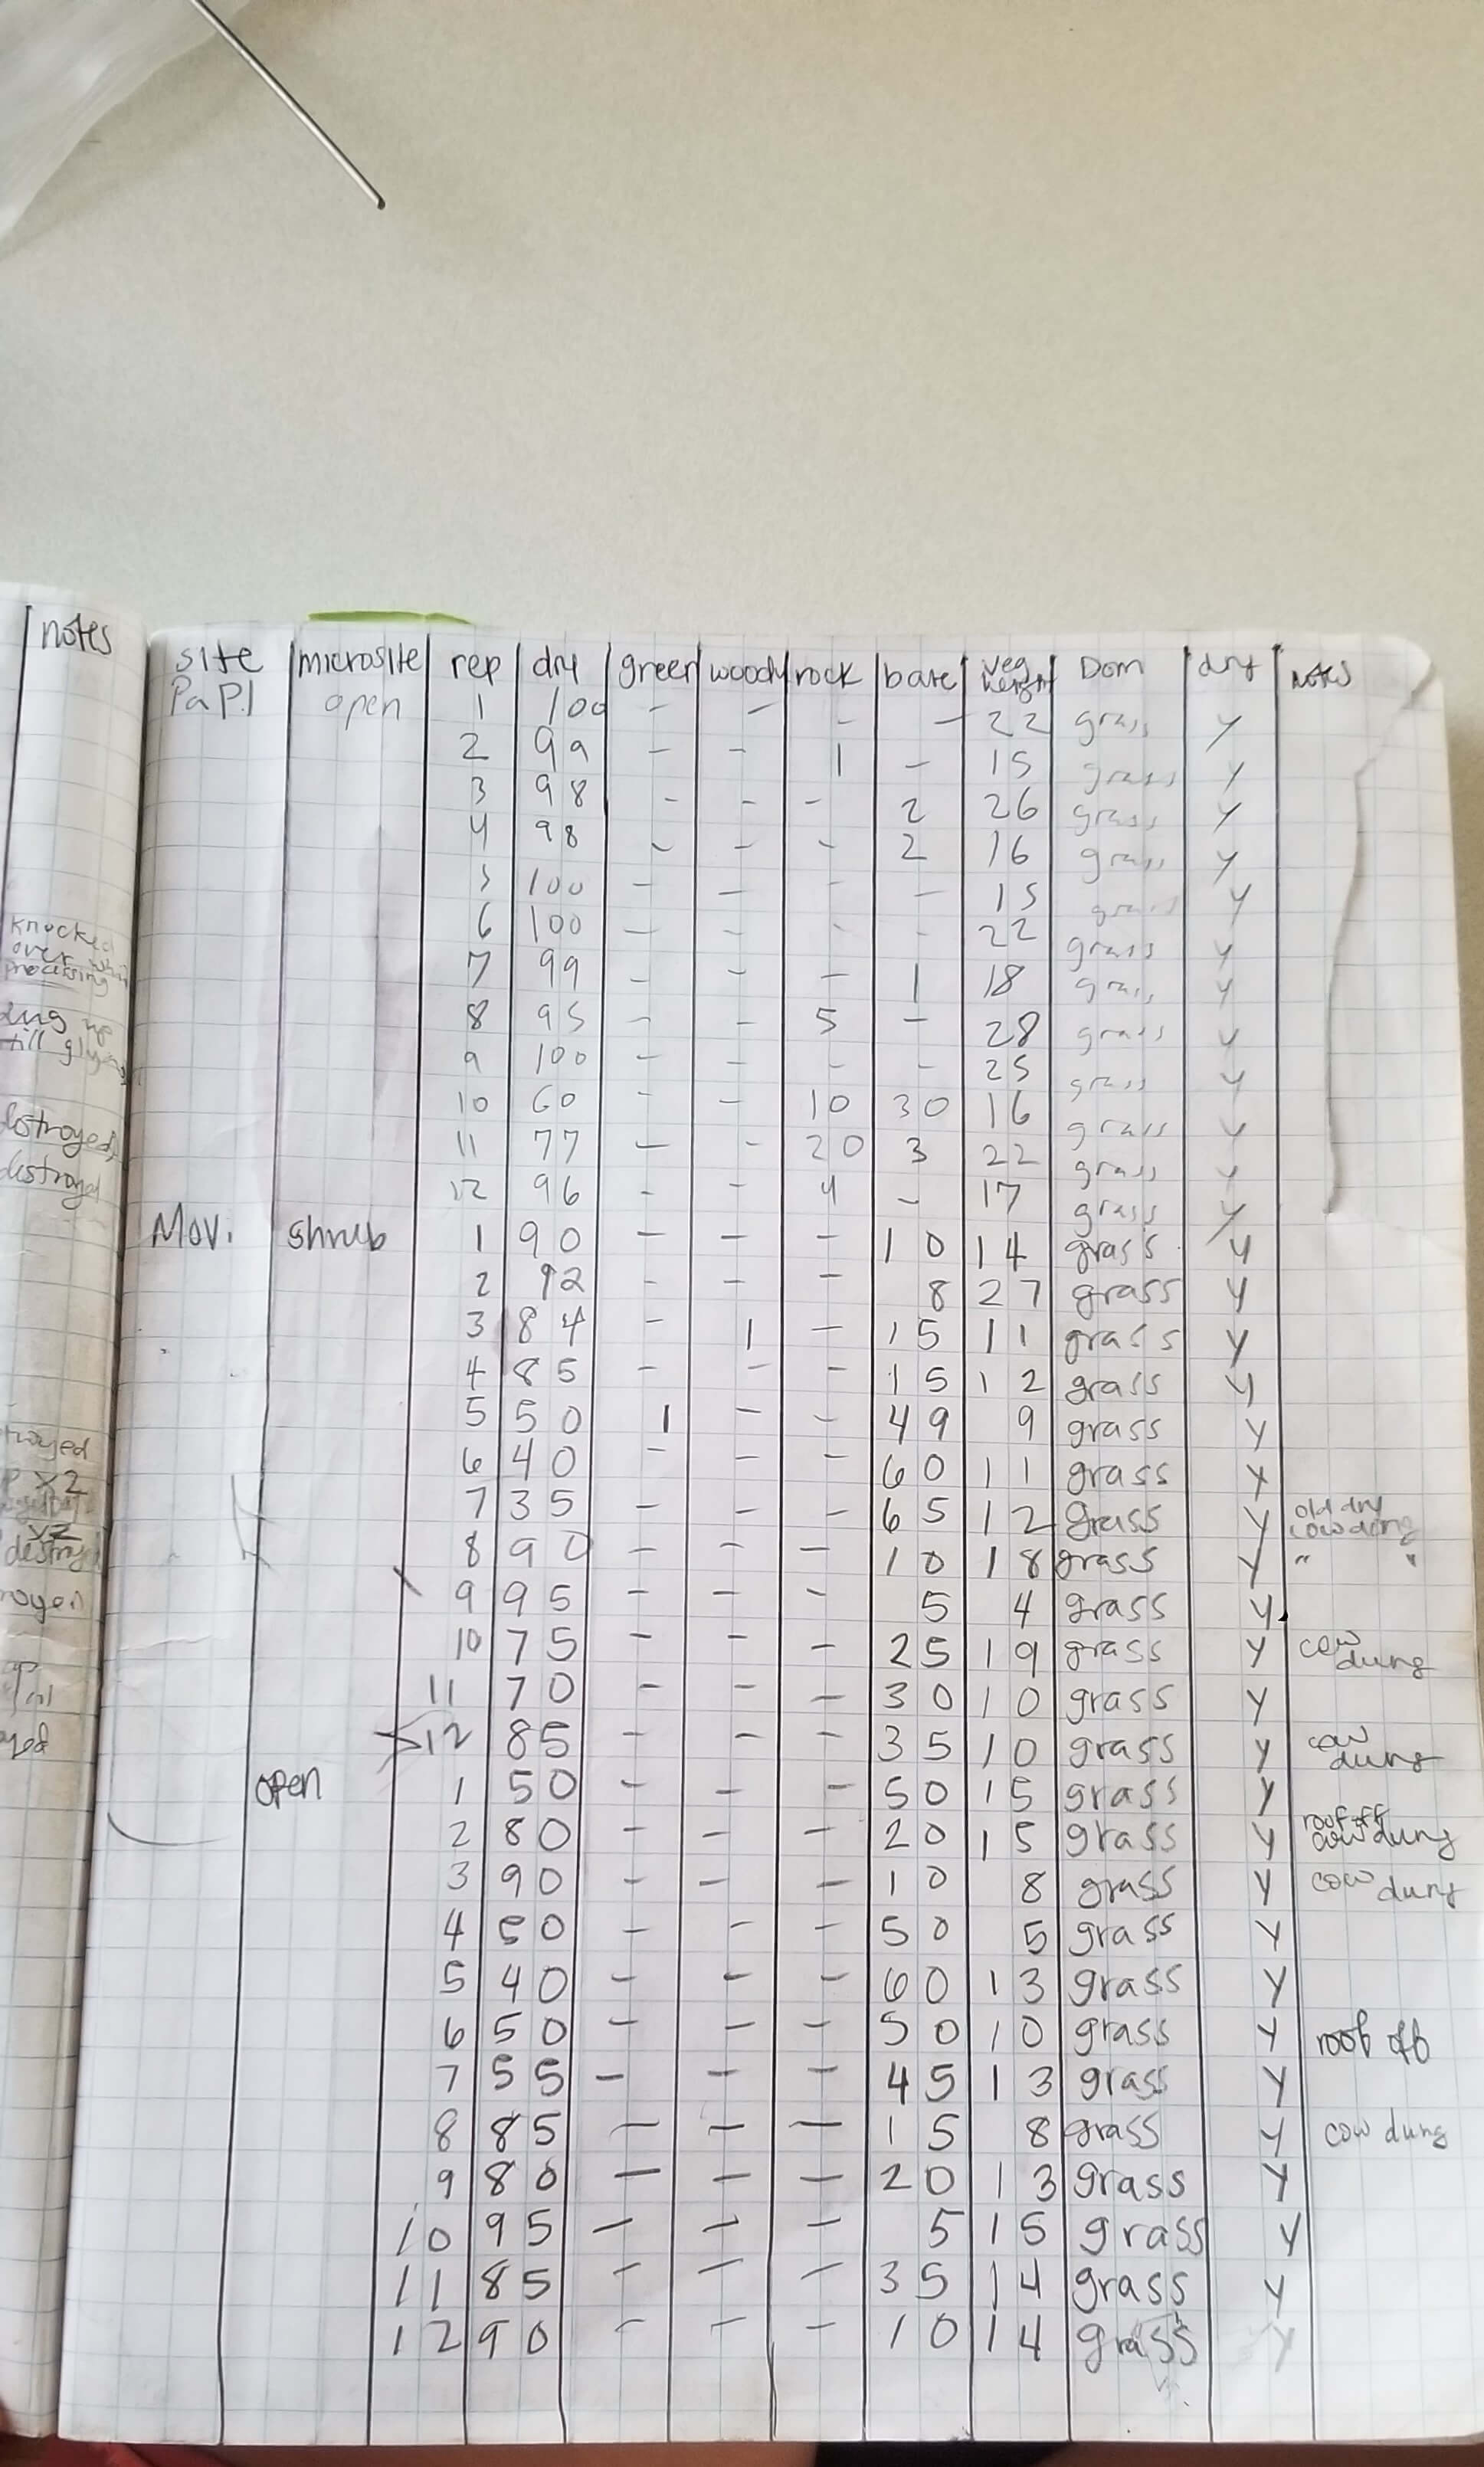 notes
knocked
over
processing
dug up
till
destroyed
x2
site microsite rep dry green woody rock bare veg height Dom dry notes
PaP.1 open 1 100 - - - - 22 grass y
2 99 - - 1 - 15 grass y
3 98 - - - 2 26 grass y
4 98 - - - 2 16 grass y
5 100 - - - - 15 grass y
6 100 - - - - 22 grass y
7 99 - - - 1 18 grass y
8 95 - - 5 - 28 grass y
9 100 - - - - 25 grass y
10 60 - - 10 30 16 grass y
11 77 - - 20 3 22 grass y
12 96 - - 4 - 17 grass y
Mov. shrub 1 90 - - - 10 14 grass y
2 92 - - - 8 27 grass y
3 84 - 1 - 15 11 grass y
4 85 - - - 15 12 grass y
5 50 1 - - 49 9 grass y
6 40 - - - 60 11 grass y
7 35 - - - 65 12 grass y old dry cow dung
8 90 - - - 10 18 grass y " "
9 95 - - - 5 4 grass y
10 75 - - - 25 19 grass y cow dung
11 70 - - - 30 10 grass y
12 85 - - - 35 10 grass y cow dung
open 1 50 - - - 50 15 grass y
2 80 - - - 20 15 grass y roof off cow dung
3 90 - - - 10 8 grass y cow dung
4 50 - - - 50 5 grass y
5 40 - - - 60 13 grass y
6 50 - - - 50 10 grass y roof off
7 55 - - - 45 13 grass y
8 85 - - - 15 8 grass y cow dung
9 80 - - - 20 13 grass y
10 95 - - - 5 15 grass y
11 85 - - - 35 14 grass y
12 90 - - - 10 14 grass y